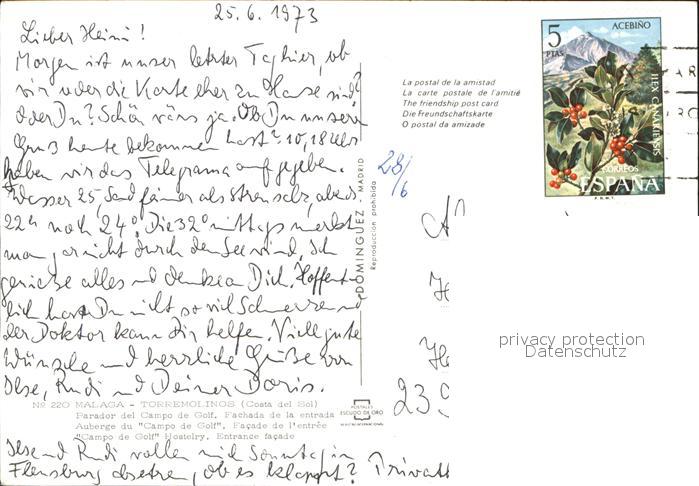 25.6.1973
Lieber Heini!
Morgen ist unser letzter Tag hier, ob
wir oder die Karte eher zu Hause sind?
oder Du? Schön wärs ja. Ob Du unseren
Gruß heute bekommen hast? 10,18 Uhr
haben wir das Telegramm aufgegeben.
Wasser 25, Sand feiner als Streusalz, abends
22 Uhr noch 24°. Die 32° mittags merkt
man gar nicht durch den Seewind. Ich
genieße alles und denke an Dich. Hoffent-
lich hast Du nicht so viel Schmerzen und
der Doktor kann Dir helfen. Viele gute
Wünsche und herzliche Grüße von
Ilse, Rudi und Deiner Doris.
Nº 220 MALAGA - TORREMOLINOS (Costa del Sol)
Parador del Campo de Golf. Fachada de la entrada
Auberge du "Campo de Golf". Façade de l'entrée
"Campo de Golf" Hostelry. Entrance façade
Ilse und Rudi wollen mich Sonntag in
Flensburg absetzen, ob es klappt? Privat
POSTALES
ESCUDO DE ORO
DOMINGUEZ MADRID
Reproducción prohibida
28/6
La postal de la amistad
La carte postale de l'amitié
The friendship post card
Die Freundschaftskarte
O postal da amizade
5
PTAS
ACEBIÑO
ILEX CANARIENSIS
CORREOS
ESPAÑA
F.N.M.T.
23
privacy protection
Datenschutz